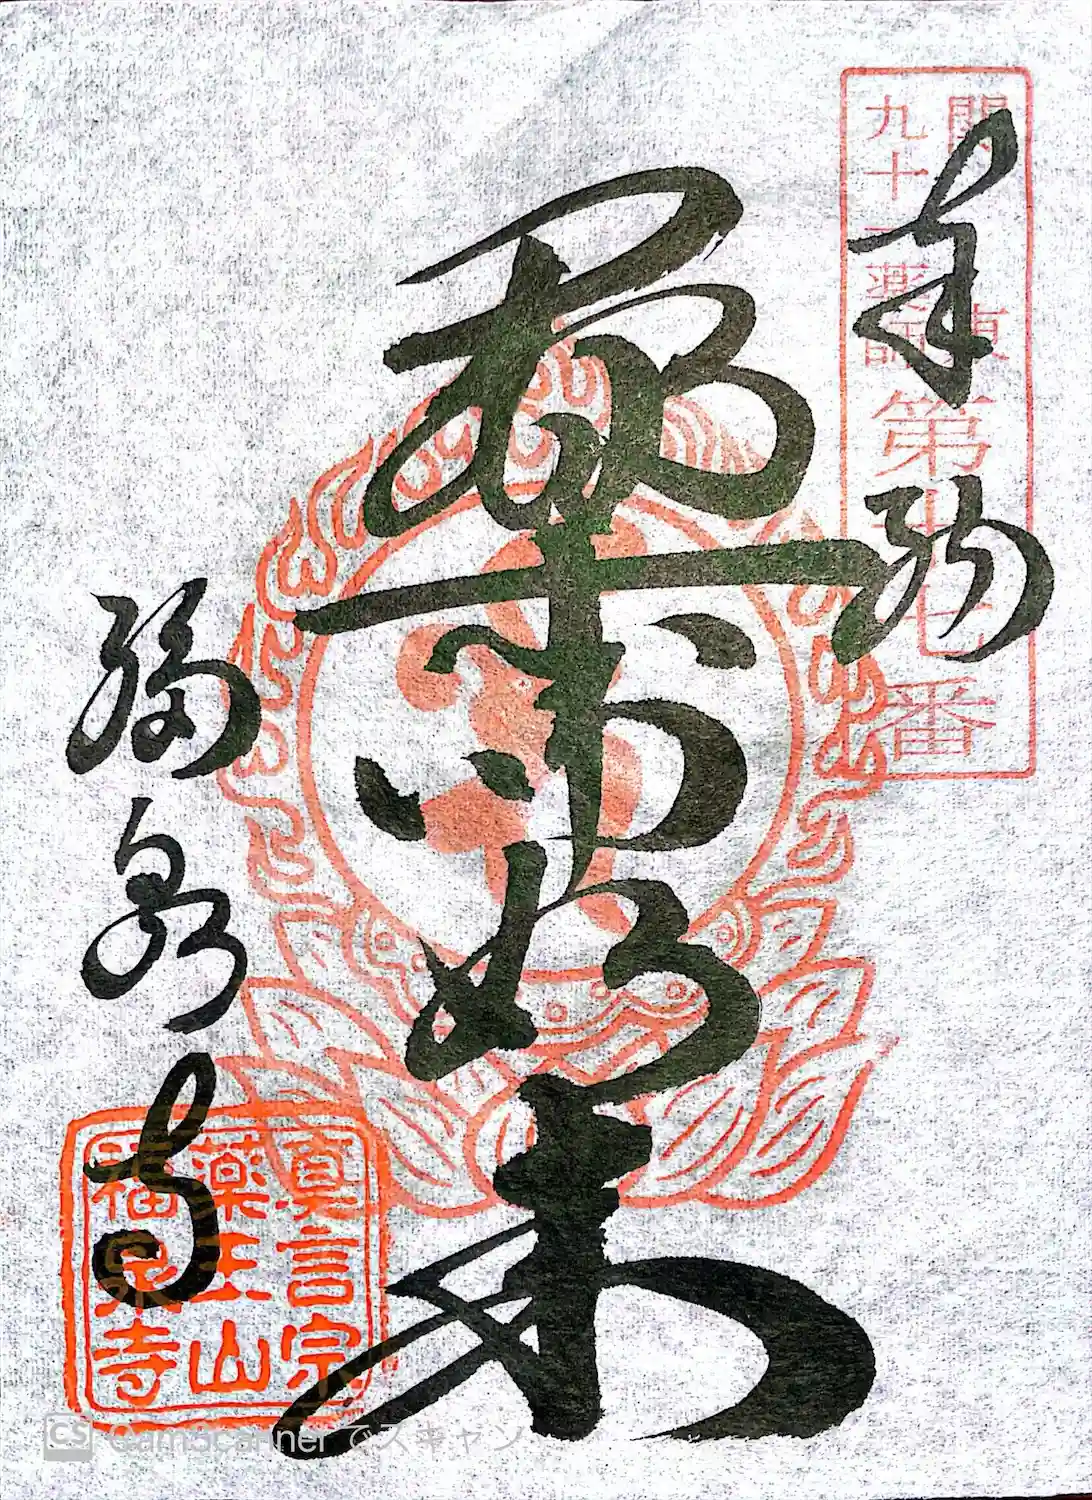 奉拝
関東
九十一薬師
第十七番
薬師如来
福泉寺
眞言宗
薬王山
福泉寺
CS CamScanner でスキャン